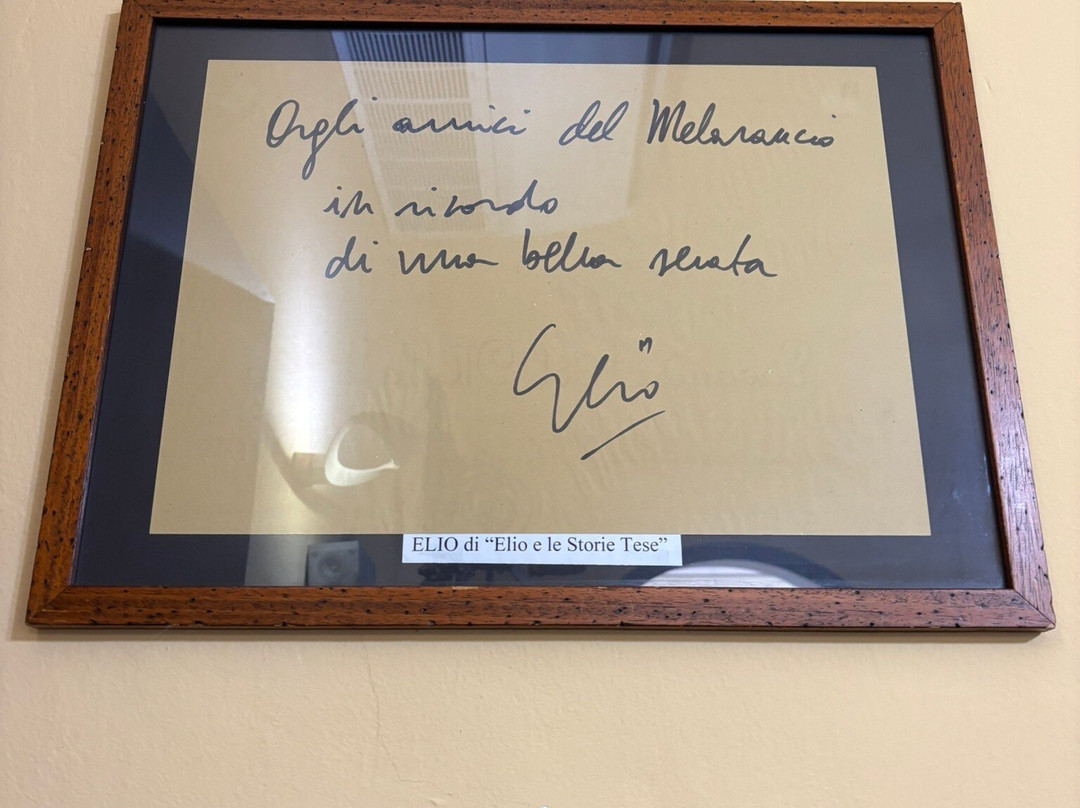 Agli amici del Melarancio
in ricordo
di una bella serata
Elio
ELIO di “Elio e le Storie Tese”